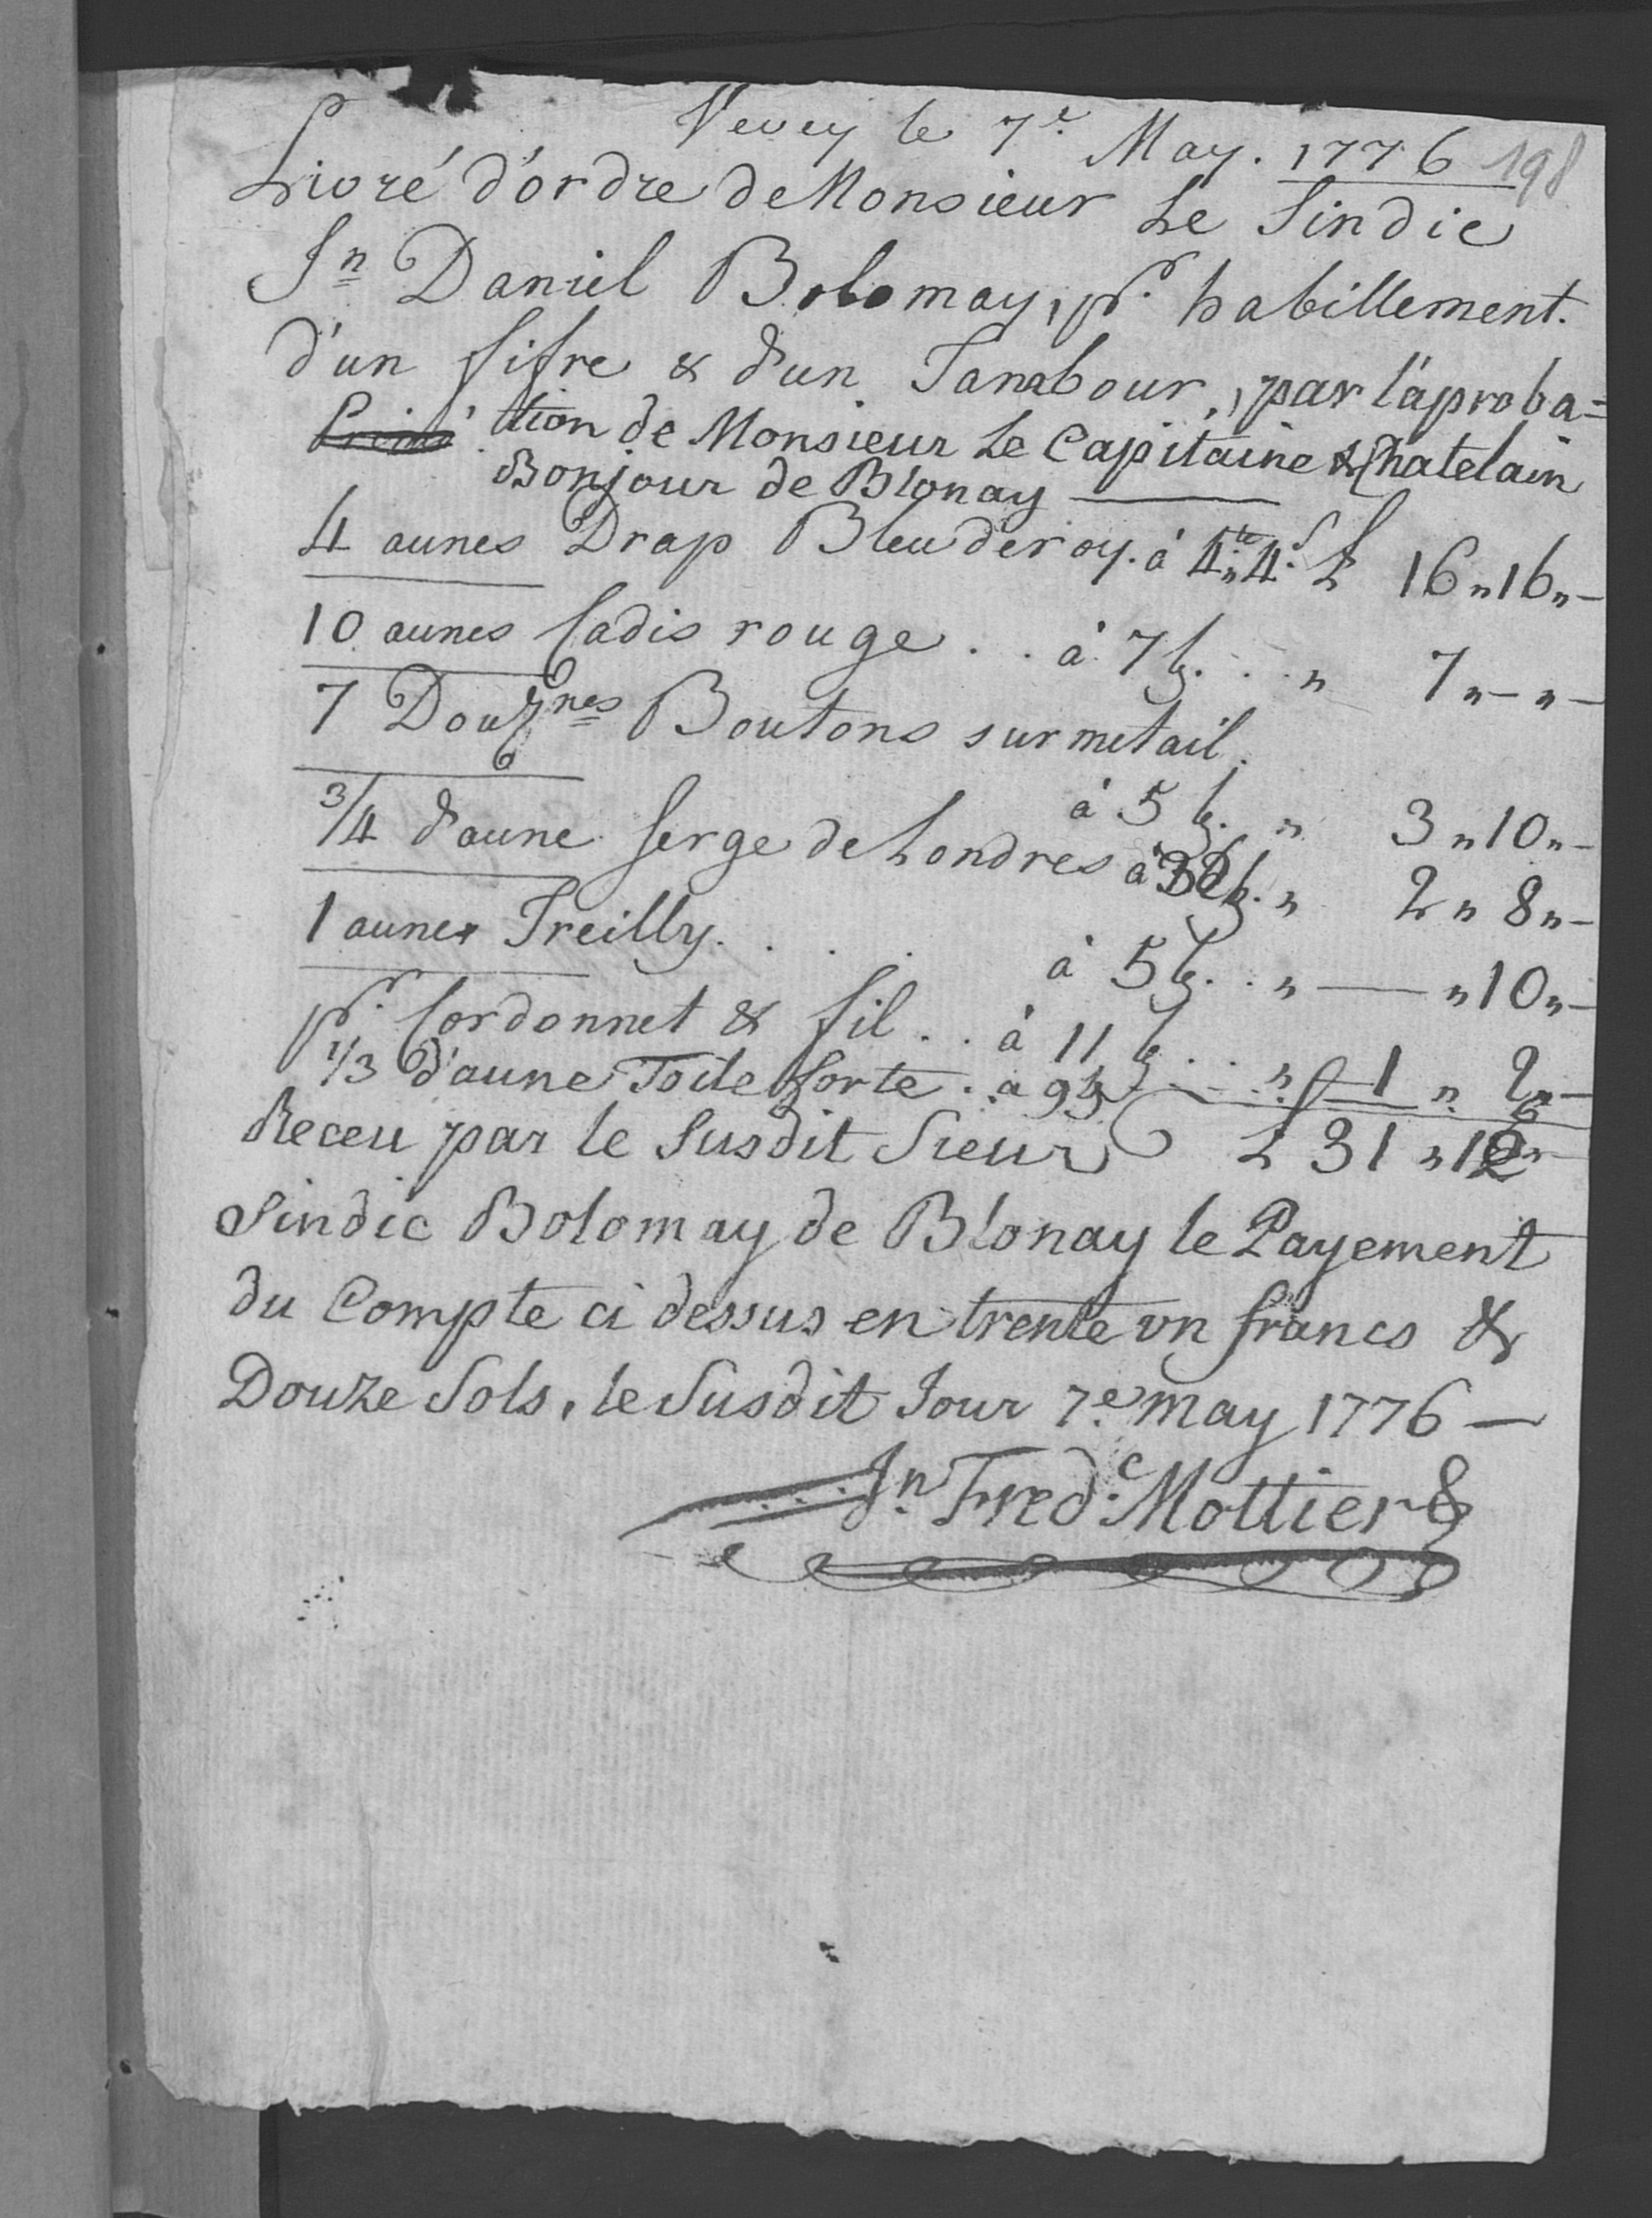 Vevey le 7e. May. 1776 198
Livré d'ordre de Monsieur Le Sindic
Jn Daniel Bolomay, pr. habillement.
d'un fifre & d'un Tambour, par l'aproba=
tion de Monsieur Le Capitaine & Chatelain
Bonjour de Blonay ———
4 aunes Drap Bleu de roy. à 4 " 4s. L 16 " 16 " —
10 aunes Cadis rouge . . à 7 b. . . " 7 " — " —
7 Douznes Boutons sur metail.
à 5 b. " 3 " 10 " —
3/4 d'aune Serge de Londres à b. " 2 " 8 " —
1 aune Treilly. . . . à 5 b. . " — " 10 " —
pr. Cordonnet & fil . . à 11 b. . . " 1 " 2 " —
1/3 d'aune Toile forte . à 9 b — . " 6
Receu par le Susdit Sieur L 31 " 12 " —
Sindic Bolomay de Blonay le Payement
du Compte ci dessus en trente un francs &
Douze Sols, le Susdit Jour 7e. may 1776 —
Jn. Fredc. Mottier